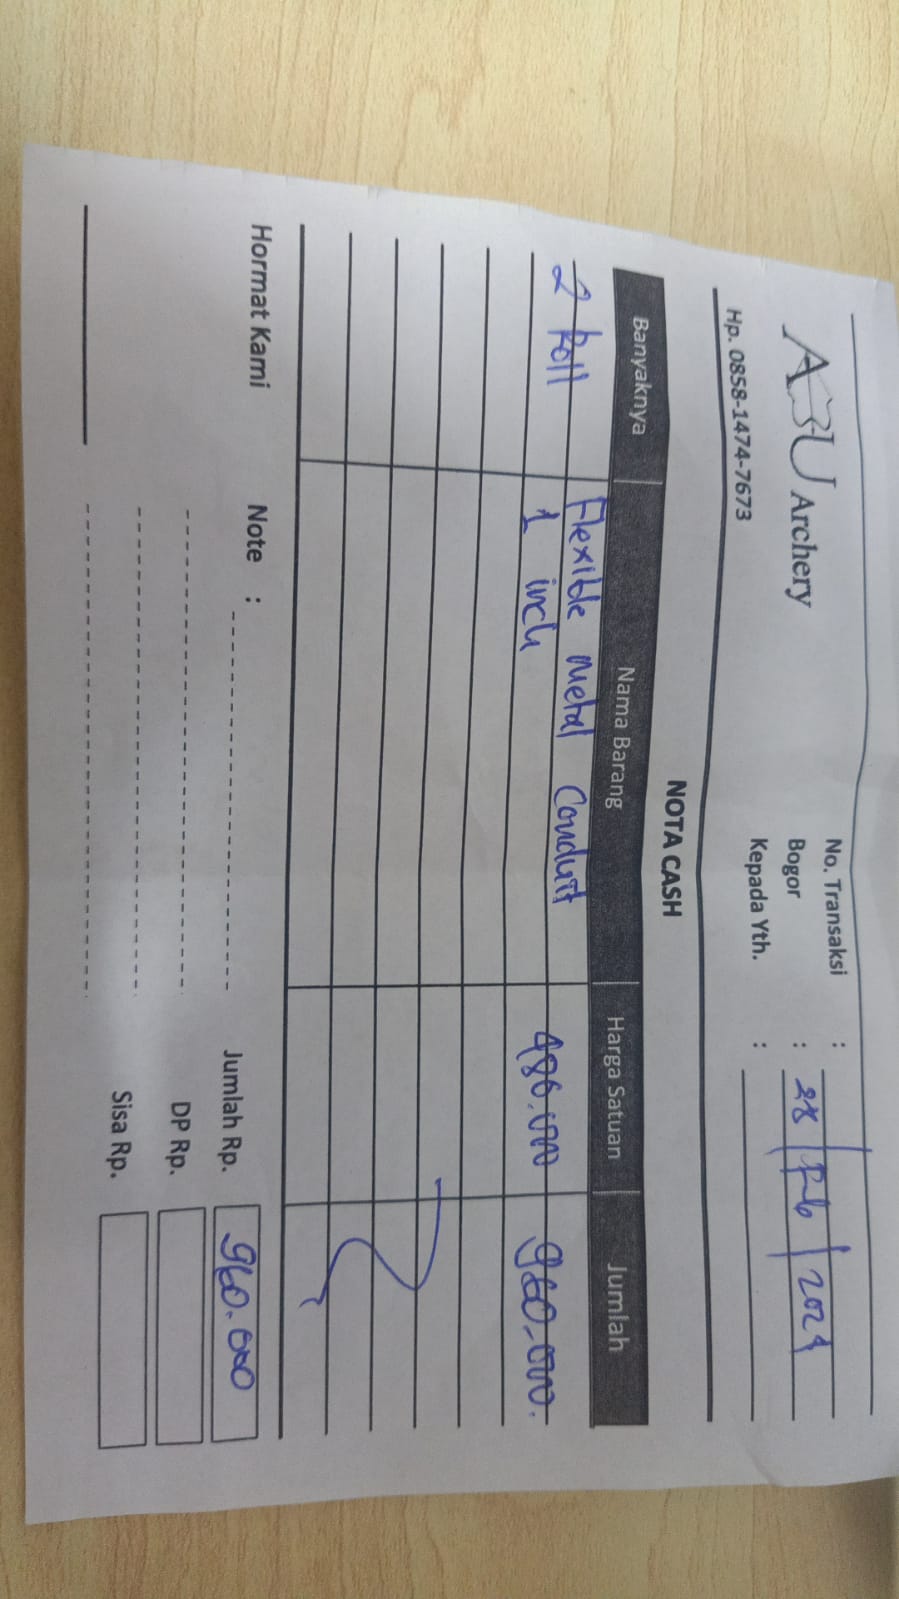 ABU Archery
Hp. 0858-1474-7673
No. Transaksi :
Bogor : 28 / Feb / 2024
Kepada Yth. :
NOTA CASH
Banyaknya Nama Barang Harga Satuan Jumlah
2 Roll Flexible metal Conduit 480.000 960.000.
1 inch
Hormat Kami Note : Jumlah Rp. 960.000
DP Rp.
Sisa Rp.